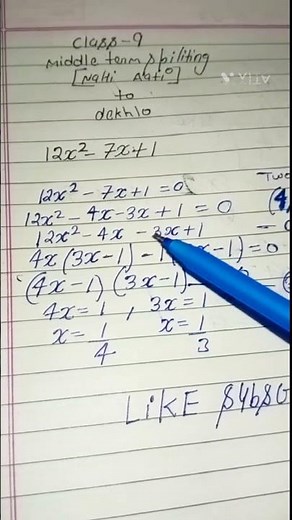 Class-9
Middle term spiliting
[Nahi Aati]
to
dekhlo
12x² - 7x + 1
12x² - 7x + 1 = 0
12x² - 4x - 3x + 1 = 0
12x² - 4x - 3x + 1
4x(3x-1) - 1( x-1) = 0
(4x-1) (3x-1)
4x = 1 , 3x = 1
x = 1/4 x = 1/3
LIKE